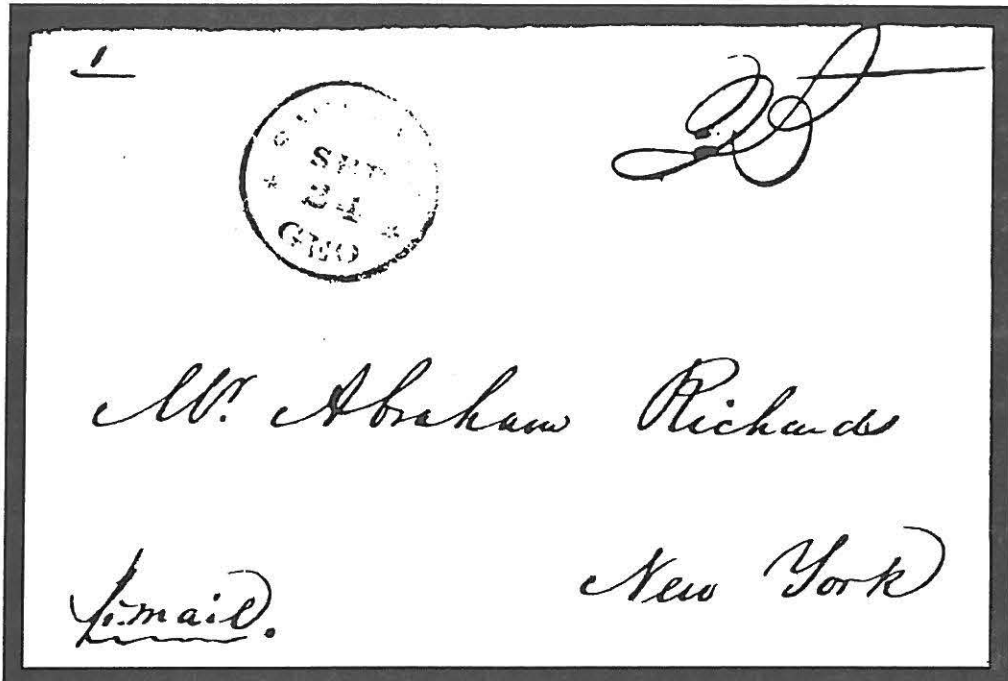 1
SEP
24
GEO
Mr. Abraham Richards
New York
pr. mail.